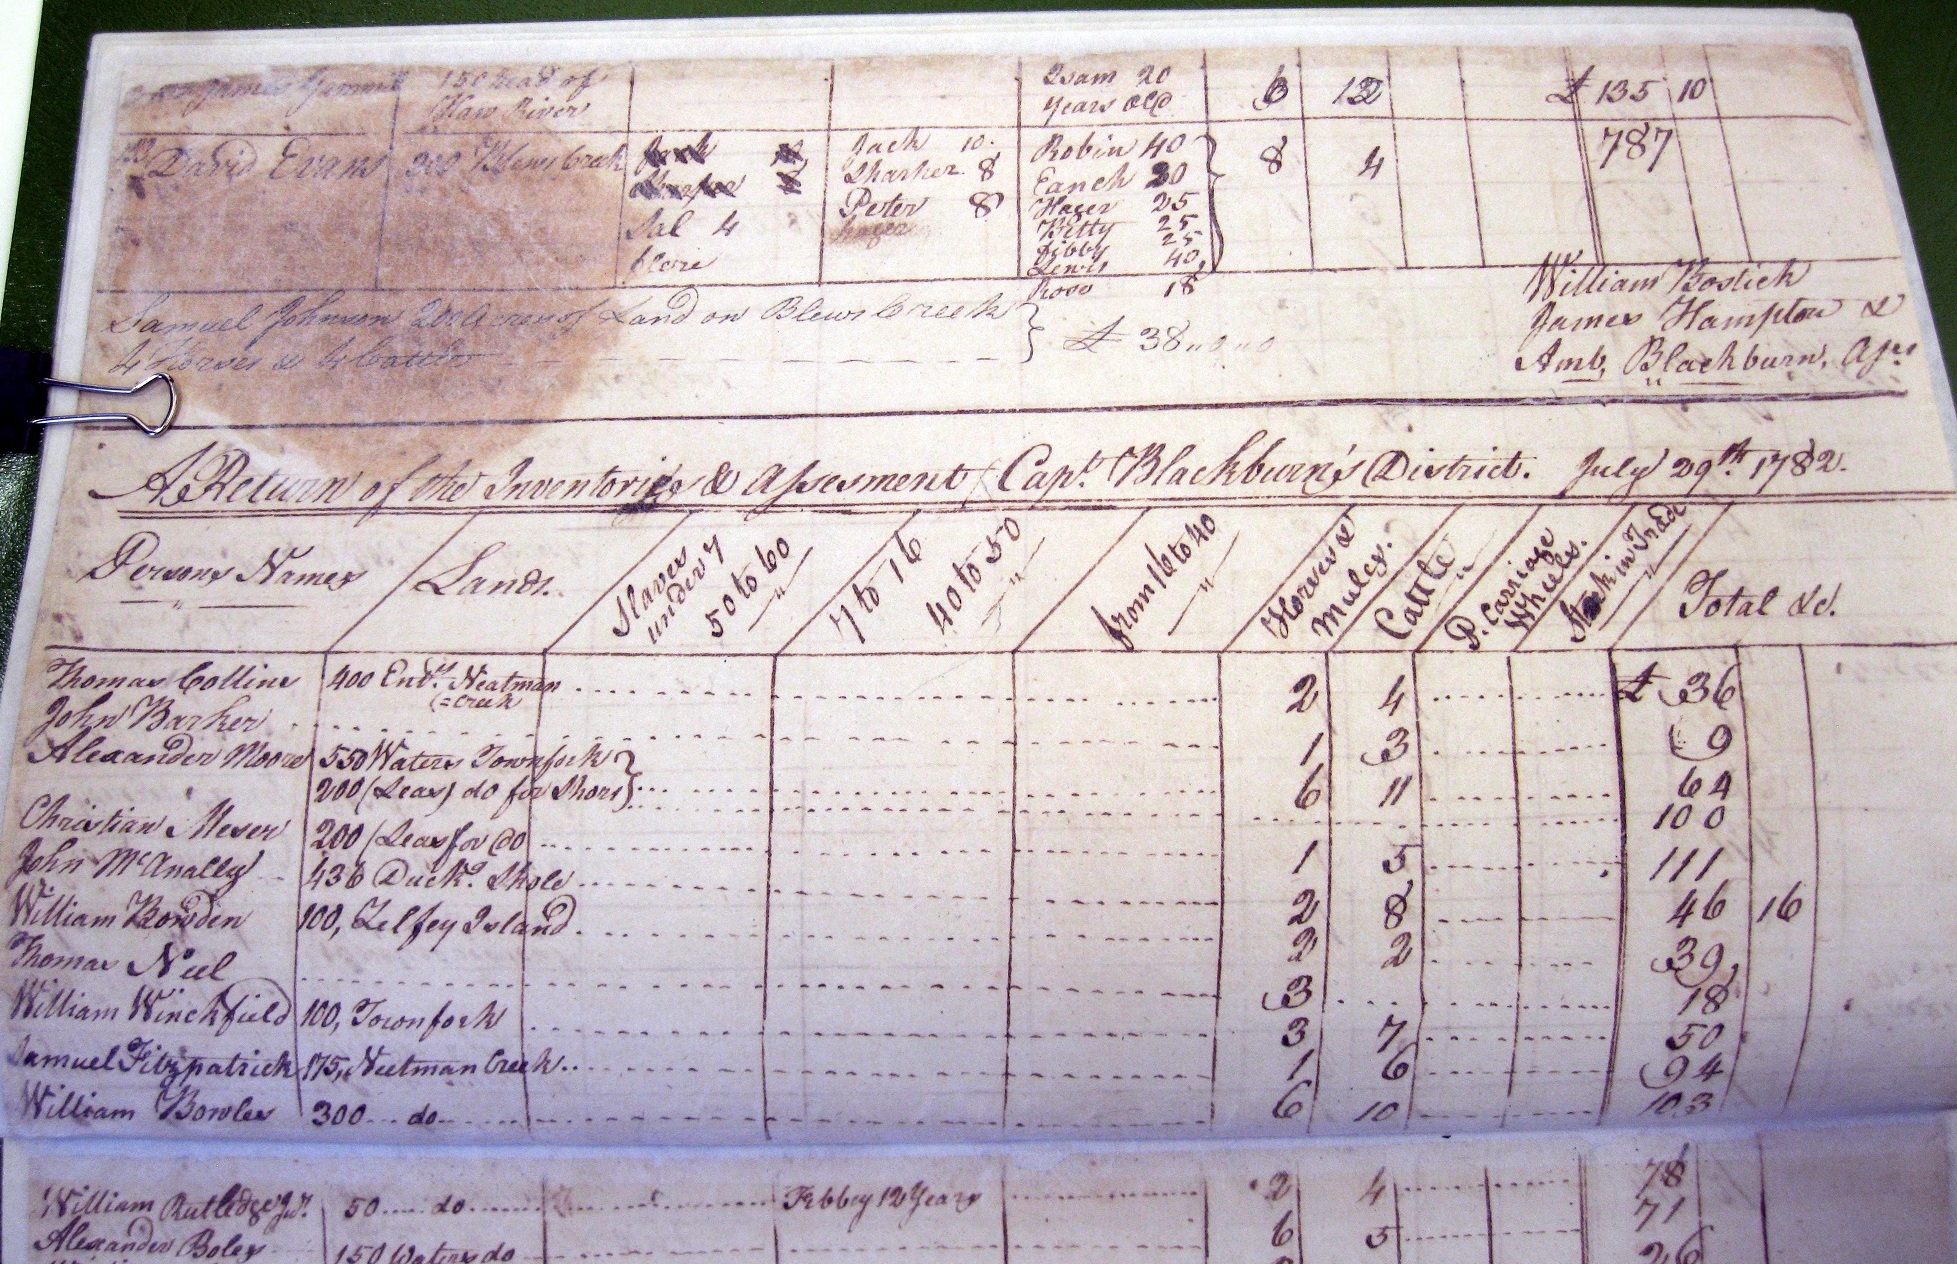 James Gammill 150 head of Haw River Isam 20 years old 6 12 £ 135 10
David Evans 200 Blews Creek Jack 10. Robin 40 8 4 787
Sharker 8 Fanch 30
Sal 4 Peter 8 Hager 25
Kitty 25
flore Libby 25
Lewis 40
Rose 18
William Bostick
James Hampton &
Amb. Blackburn, Asrs
Samuel Johnson 200 Acres of Land on Blews Creek
4 Horses & 4 Cattle £ 38 " 0 " 0
A Return of the Inventories & Assesment Capt. Blackburn's District. July 29th 1782.
Persons Names Lands. Slaves under 7 50 to 60 " 7 to 16 40 to 50 " from 16 to 40 " Horses & Mules. Cattle " P. Carriage Wheles. Stock in Trade " Total &c.
Thomas Collins 400 Entry Neatman Creek 2 4 £ 36
John Barker 1 3 9
Alexander Moore 550 Waters Townfork
200 (Leas) do for Shors 6 11 64
Christian Meser 200 (Leas for do 100
John McAnally 436 Duck. Shole 1 5 111
William Bowden 100, Zelfey Island 2 8 46 16
Thomas Neel 2 2 39
William Winchfield 100, Townfork 3 18
Samuel Fitzpatrick 175, Neetman Creek 3 7 50
William Bowles 300 do 1 6 94
6 10 103
William Rutledge Jr. 50 do Febbey 12 Years 2 4 78
Alexander Boles 150 Waters do 6 5 71
26